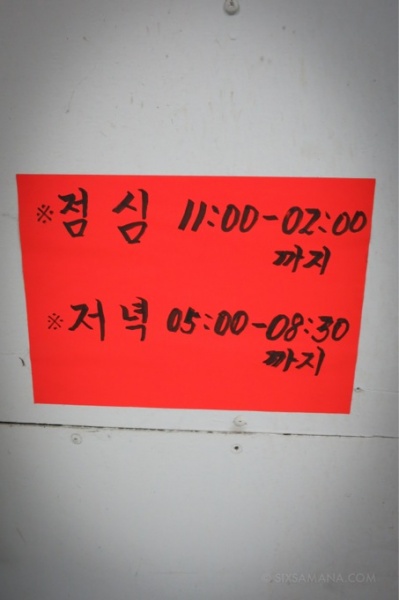 ※점심 11:00-02:00
까지
※저녁 05:00-08:30
까지
© SIXSAMANA.COM